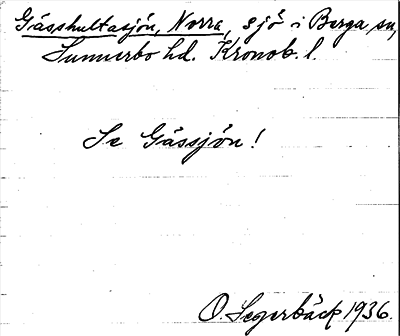 Gässhultasjön, Norra, sjö i Berga sn,
Sunnerbo hd. Kronob. l.
Se Gässjön!
O. Segerbäck 1936.